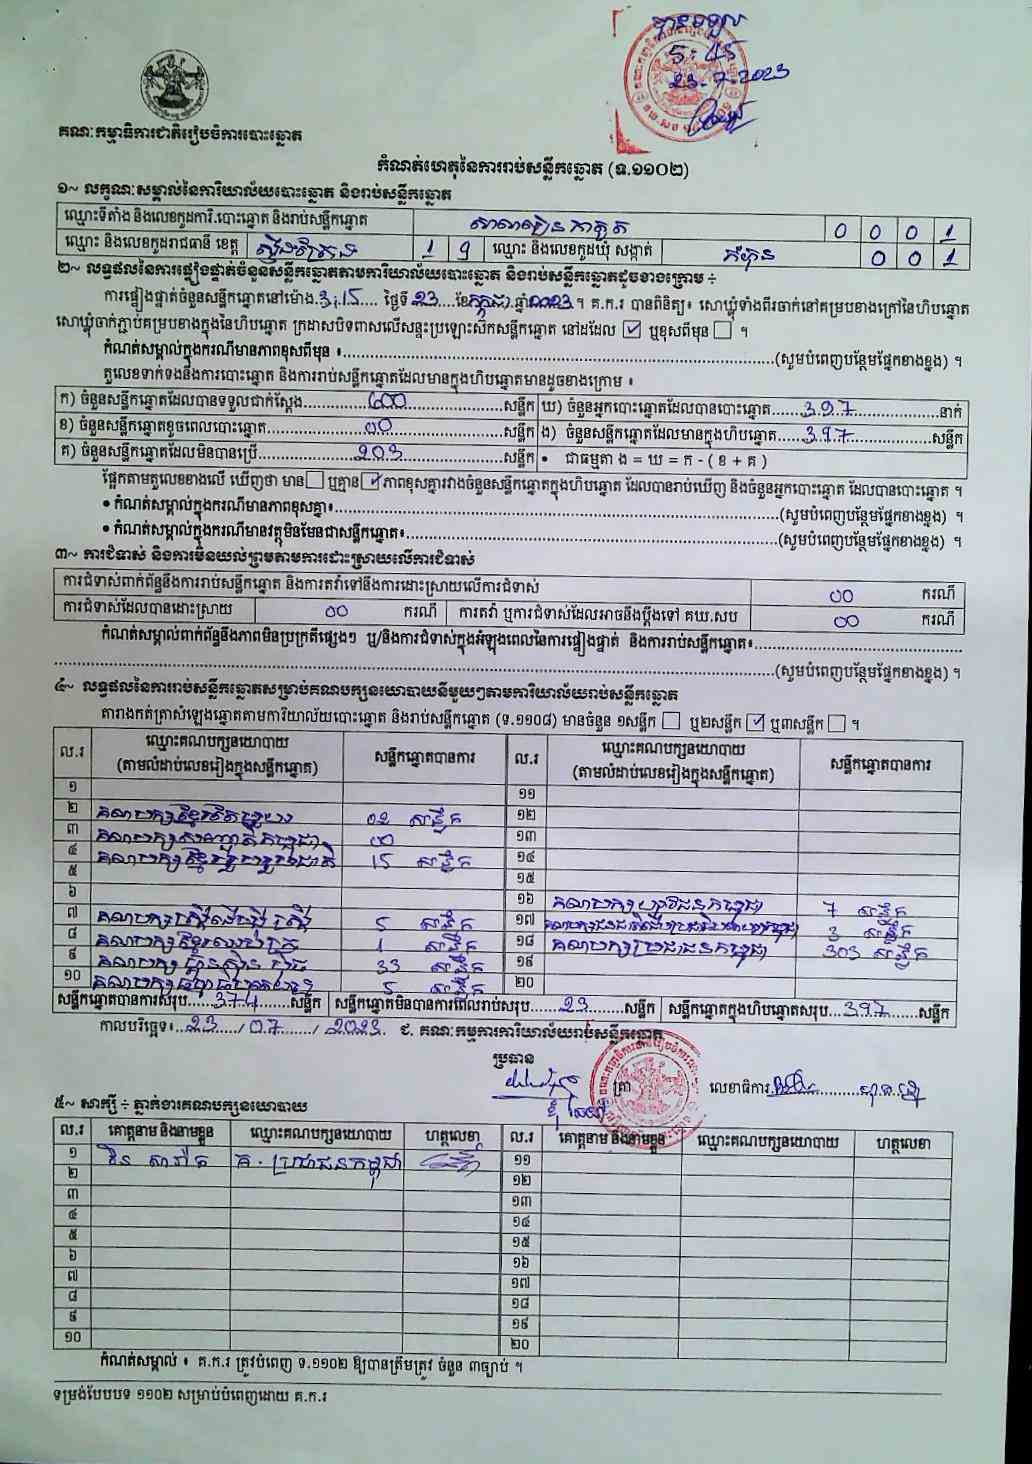 បានទទួល
5:45
23.7.2023
គណៈកម្មាធិការជាតិរៀបចំការបោះឆ្នោត
កំណត់ហេតុនៃការរាប់សន្លឹកឆ្នោត (ទ.១១០២)
១~ លក្ខណៈសម្គាល់នៃការិយាល័យបោះឆ្នោត និងរាប់សន្លឹកឆ្នោត
ឈ្មោះទីតាំង និងលេខកូដការិ.បោះឆ្នោត និងរាប់សន្លឹកឆ្នោត 0 0 0 1
ឈ្មោះ និងលេខកូដរាជធានី ខេត្ត ស្ទឹងត្រែង 1 9 ឈ្មោះ និងលេខកូដឃុំ សង្កាត់ កំភុន 0 0 1
២~ លទ្ធផលនៃការផ្ទៀងផ្ទាត់ចំនួនសន្លឹកឆ្នោតតាមការិយាល័យបោះឆ្នោត និងរាប់សន្លឹកឆ្នោតដូចខាងក្រោម ÷
ការផ្ទៀងផ្ទាត់ចំនួនសន្លឹកឆ្នោតនៅម៉ោង.3:15.... ថ្ងៃទី 23 ខែកក្កដា ឆ្នាំ2023។ គ.ក.រ បានពិនិត្យ៖ សោឃ្លុំទាំងពីរចាក់នៅគម្របខាងក្រៅនៃហិបឆ្នោត
សោឃ្លុំចាក់ភ្ជាប់គម្របខាងក្នុងនៃហិបឆ្នោត ក្រដាសបិទពាសលើសន្ទះប្រឡោះសឹកសន្លឹកឆ្នោត នៅដដែល ☑ ឬខុសពីមុន ☐ ។
កំណត់សម្គាល់ក្នុងករណីមានភាពខុសពីមុន ៖...(សូមបំពេញបន្ថែមផ្នែកខាងខ្នង) ។
តួលេខទាក់ទងនឹងការបោះឆ្នោត និងការរាប់សន្លឹកឆ្នោតដែលមានក្នុងហិបឆ្នោតមានដូចខាងក្រោម ៖
ក) ចំនួនសន្លឹកឆ្នោតដែលបានទទួលជាក់ស្តែង...600...សន្លឹក ឃ) ចំនួនអ្នកបោះឆ្នោតដែលបានបោះឆ្នោត...397...នាក់
ខ) ចំនួនសន្លឹកឆ្នោតខូចពេលបោះឆ្នោត...00...សន្លឹក ង) ចំនួនសន្លឹកឆ្នោតដែលមានក្នុងហិបឆ្នោត...397...សន្លឹក
គ) ចំនួនសន្លឹកឆ្នោតដែលមិនបានប្រើ...203...សន្លឹក • ជាធម្មតា ង = ឃ = ក - ( ខ + គ )
ផ្អែកតាមតួលេខខាងលើ ឃើញថា មាន ☐ ឬគ្មាន ☑ ភាពខុសគ្នារវាងចំនួនសន្លឹកឆ្នោតក្នុងហិបឆ្នោត ដែលបានរាប់ឃើញ និងចំនួនអ្នកបោះឆ្នោត ដែលបានបោះឆ្នោត ។
• កំណត់សម្គាល់ក្នុងករណីមានភាពខុសគ្នា៖...(សូមបំពេញបន្ថែមផ្នែកខាងខ្នង) ។
• កំណត់សម្គាល់ក្នុងករណីមានវត្ថុមិនមែនជាសន្លឹកឆ្នោត៖...(សូមបំពេញបន្ថែមផ្នែកខាងខ្នង) ។
៣~ ការជំទាស់ និងការមិនយល់ព្រមតាមការដោះស្រាយលើការជំទាស់
ការជំទាស់ពាក់ព័ន្ធនឹងការរាប់សន្លឹកឆ្នោត និងការតវ៉ាទៅនឹងការដោះស្រាយលើការជំទាស់ 00 ករណី
ការជំទាស់ដែលបានដោះស្រាយ 00 ករណី ការតវ៉ា ឬការជំទាស់ដែលអាចនឹងប្តឹងទៅ គឃ.សប 00 ករណី
កំណត់សម្គាល់ពាក់ព័ន្ធនឹងភាពមិនប្រក្រតីផ្សេងៗ ឬ/និងការជំទាស់ក្នុងអំឡុងពេលនៃការផ្ទៀងផ្ទាត់ និងការរាប់សន្លឹកឆ្នោត៖...
...(សូមបំពេញបន្ថែមផ្នែកខាងខ្នង) ។
៤~ លទ្ធផលនៃការរាប់សន្លឹកឆ្នោតសម្រាប់គណបក្សនយោបាយនីមួយៗតាមការិយាល័យរាប់សន្លឹកឆ្នោត
តារាងកត់ត្រាសំឡេងឆ្នោតតាមការិយាល័យបោះឆ្នោត និងរាប់សន្លឹកឆ្នោត (ទ.១១០៨) មានចំនួន ១សន្លឹក ☐ ឬ២សន្លឹក ☑ ឬ៣សន្លឹក ☐ ។
ល.រ ឈ្មោះគណបក្សនយោបាយ (តាមលំដាប់លេខរៀងក្នុងសន្លឹកឆ្នោត) សន្លឹកឆ្នោតបានការ ល.រ ឈ្មោះគណបក្សនយោបាយ (តាមលំដាប់លេខរៀងក្នុងសន្លឹកឆ្នោត) សន្លឹកឆ្នោតបានការ
១ ១១
២ 02 សន្លឹក ១២
៣ 00 ១៣
៤ គណបក្សខ្មែររួបរួមជាតិ 15 សន្លឹក ១៤
៥ ១៥
៦ ១៦ គណបក្សយុវជនកម្ពុជា 7 សន្លឹក
៧ គណបក្សស្ត្រីដើម្បីស្ត្រី 5 សន្លឹក ១៧ 3 សន្លឹក
៨ 1 សន្លឹក ១៨ គណបក្សប្រជាជនកម្ពុជា 303 សន្លឹក
៩ គណបក្សហ្វ៊ុនស៊ិនប៉ិច 33 សន្លឹក ១៩
១០ 5 សន្លឹក ២០
សន្លឹកឆ្នោតបានការសរុប...374...សន្លឹក សន្លឹកឆ្នោតមិនបានការដែលរាប់សរុប...23...សន្លឹក សន្លឹកឆ្នោតក្នុងហិបឆ្នោតសរុប...397...សន្លឹក
កាលបរិច្ឆេទ៖..23../07../2023 ជ. គណៈកម្មការការិយាល័យរាប់សន្លឹកឆ្នោត
ប្រធាន
ត្រា លេខាធិការ
៥~ សាក្សី ÷ ភ្នាក់ងារគណបក្សនយោបាយ
ល.រ គោត្តនាម និងនាមខ្លួន ឈ្មោះគណបក្សនយោបាយ ហត្ថលេខា ល.រ គោត្តនាម និងនាមខ្លួន ឈ្មោះគណបក្សនយោបាយ ហត្ថលេខា
១ គ.ប្រជាជនកម្ពុជា ១១
២ ១២
៣ ១៣
៤ ១៤
៥ ១៥
៦ ១៦
៧ ១៧
៨ ១៨
៩ ១៩
១០ ២០
កំណត់សម្គាល់ ៖ គ.ក.រ ត្រូវបំពេញ ទ.១១០២ ឱ្យបានត្រឹមត្រូវ ចំនួន ៣ច្បាប់ ។
ទម្រង់បែបបទ ១១០២ សម្រាប់បំពេញដោយ គ.ក.រ